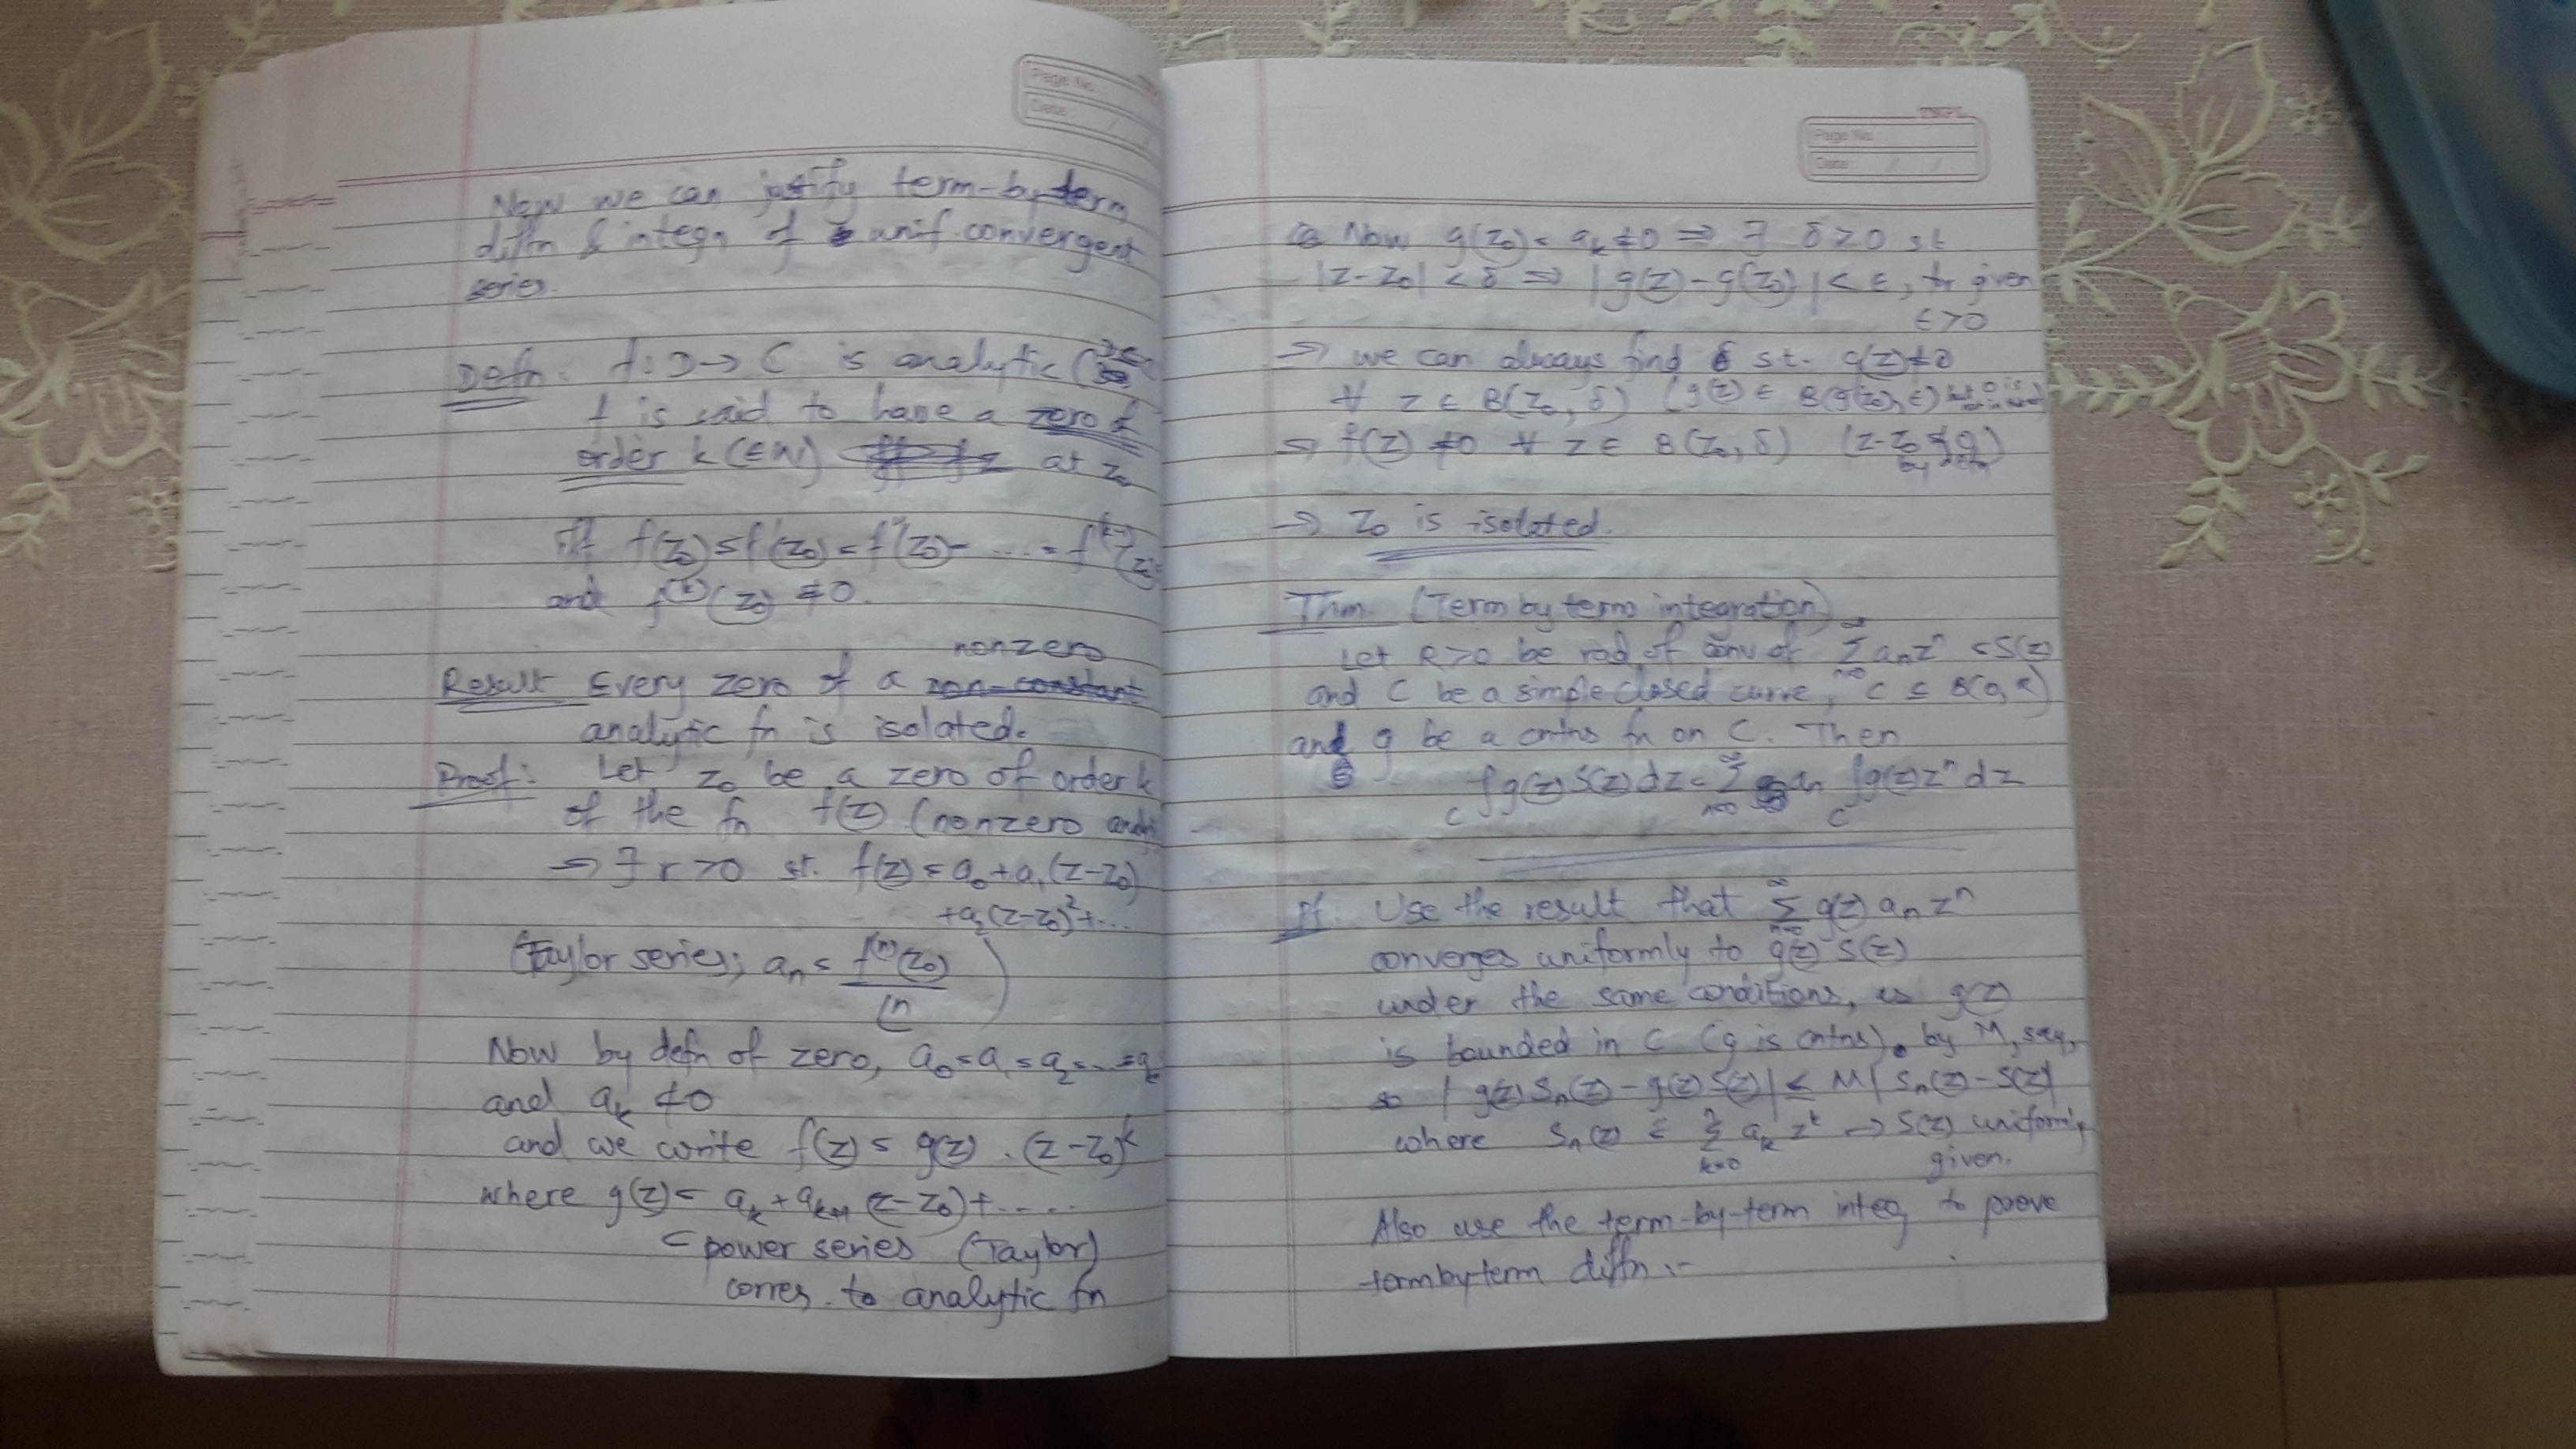 Page No.
Date: / /
Now we can justify term-by-term
diffn & integn of unif. convergent
series.
Defn: f: D → C is analytic
f is said to have a zero of
order k (∈ N) at z₀
iff f(z₀) = f'(z₀) = f''(z₀) = .... = f^(k-1)(z₀)
and f^(k)(z₀) ≠ 0.
nonzero
Result Every zero of a non-constant
analytic fn is isolated.
Proof: Let z₀ be a zero of order k
of the fn f(z) (nonzero
⇒ ∃ r > 0 st. f(z) = a₀ + a₁(z-z₀)
+ a₂(z-z₀)² + ...
(Taylor series; aₙ = f^(n)(z₀) / ⌊n )
Now by defn of zero, a₀ = a₁ = a₂ = ... =
and aₖ ≠ 0
and we write f(z) = g(z) . (z-z₀)^k
where g(z) = aₖ + aₖ₊₁ (z-z₀) + .....
= power series (Taylor)
corres. to analytic fn
TNPL
Page No.
Date: / /
Now g(z₀) = aₖ ≠ 0 ⇒ ∃ δ > 0 st
|z-z₀| < δ ⇒ |g(z) - g(z₀)| < ε, for given
ε > 0
⇒ we can always find δ s.t. g(z) ≠ 0
∀ z ∈ B(z₀, δ) (g(z) ∈ B(g(z₀), ε)
⇒ f(z) ≠ 0 ∀ z ∈ B(z₀, δ) (z-z₀ ≠ 0
by defn)
⇒ z₀ is isolated.
Thm. (Term by term integration)
Let R > 0 be rad. of conv of ∑_{n=0}^∞ aₙzⁿ = S(z)
and C be a simple closed curve, C ⊆ B(0, R)
and g be a cntns fn on C. Then
∫_C g(z) S(z) dz = ∑_{n=0}^∞ aₙ ∫_C g(z) zⁿ dz
Pf. Use the result that ∑_{n=0}^∞ g(z) aₙ zⁿ
converges uniformly to g(z) S(z)
under the same conditions, as g(z)
is bounded in C (g is cntns). by M, say,
so |g(z) Sₙ(z) - g(z) S(z)| ≤ M |Sₙ(z) - S(z)|
where Sₙ(z) = ∑_{k=0}^n aₖ z^k → S(z) uniformly
given.
Also use the term-by-term integ to prove
term by term diffn :-